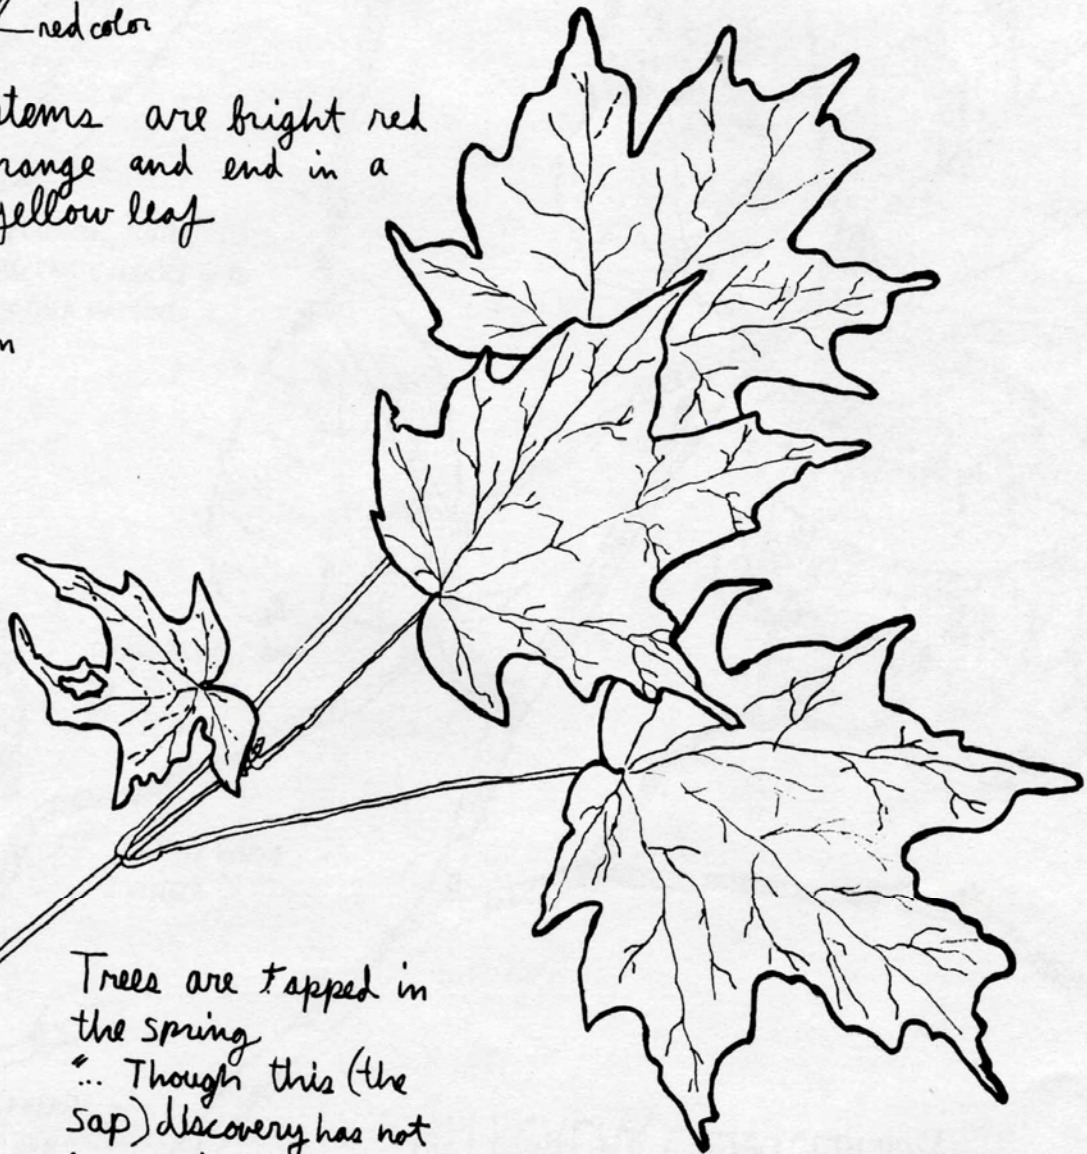 red color
stems are bright red
range and end in a
yellow leaf
Trees are tapped in
the spring
"... Though this (the
sap) discovery has not